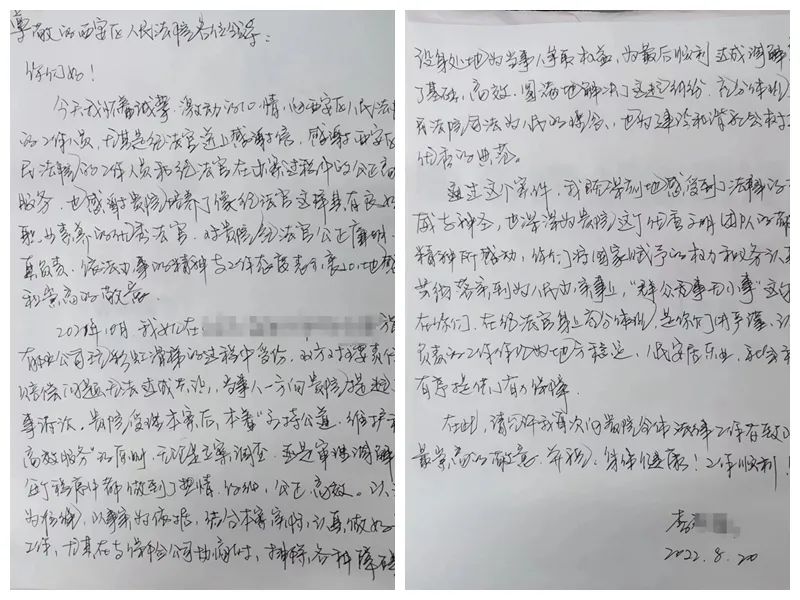 尊敬的西安区人民法院各位领导:
你们好!
今天我怀着诚挚、激动的心情,向西安区人民法
的工作人员,尤其是经法官道上感谢信,感谢西安区
民法院的工作人员和经法官在办案过程中的公正高
服务,也感谢贵院培养了像经法官这样具有良好
职业素养的优秀法官。对贵院经法官公正廉明、
真负责、依法办事的精神与工作态度表示衷心地感
和崇高的敬意。
2021年10月,我女儿在
在公司玩彩虹滑梯的过程中受伤,双方对责任
赔偿问题无法达成共识,当事人一方向贵院提起
事诉讼。贵院受理本案后,本着"主持公道、维护
高效服务"的原则,无论是立案调查,还是审理调解
每个程序中都做到了热情、公正高效。以
为准绳,以事实为依据,结合本案案情,认真做好
工作,尤其在与保险公司协商时,排除各种障碍
设身处地为当事人争取权益,为最后顺利达成调解
了基础,高效、圆满地解决了这起纠纷,充分体现
民法院司法为民的理念,也为建设和谐社会树立
优秀的典范。
通过这个案件,我既深刻地感受到了法律的
威与神圣,也深深为贵院这个优秀文明团队的
精神所感动,你们将国家赋予的权力和服务认真
落实到为人民办实事上,"群众事无小事"这句
在你们、在经法官身上充分体现,是你们用严谨、认
负责的工作作风为地方稳定、人民安居乐业、社会
有序提供了有力保障。
在此,请允许我再次向贵院全体法律工作者致以
最崇高的敬意,并祝:身体健康!工作顺利!
李
2022.8.20